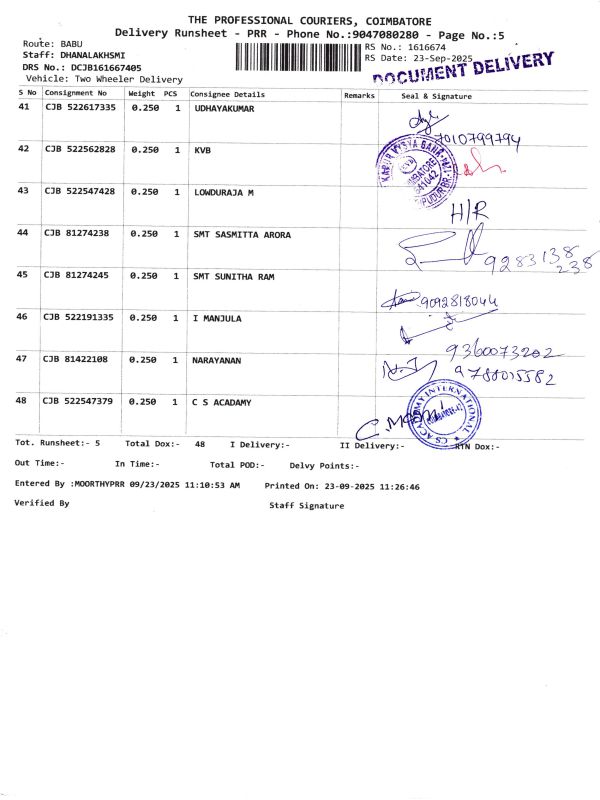 THE PROFESSIONAL COURIERS, COIMBATORE
Delivery Runsheet - PRR - Phone No.:9047080280 - Page No.:5
Route: BABU
Staff: DHANALAKHSMI
DRS No.: DCJB161667405
Vehicle: Two Wheeler Delivery
RS No.: 1616674
RS Date: 23-Sep-2025
DOCUMENT DELIVERY
S No Consignment No Weight PCS Consignee Details Remarks Seal & Signature
41 CJB 522617335 0.250 1 UDHAYAKUMAR
7010799794
42 CJB 522562828 0.250 1 KVB
43 CJB 522547428 0.250 1 LOWDURAJA M
H/R
44 CJB 81274238 0.250 1 SMT SASMITTA ARORA
9283138
238
45 CJB 81274245 0.250 1 SMT SUNITHA RAM
9092818044
46 CJB 522191335 0.250 1 I MANJULA
9360073202
47 CJB 81422108 0.250 1 NARAYANAN
9788015582
48 CJB 522547379 0.250 1 C S ACADAMY
CS ACADEMY INTERNATIONAL
Tot. Runsheet:- 5 Total Dox:- 48 I Delivery:- II Delivery:- RTN Dox:-
Out Time:- In Time:- Total POD:- Delvy Points:-
Entered By :MOORTHYPRR 09/23/2025 11:10:53 AM Printed On: 23-09-2025 11:26:46
Verified By Staff Signature